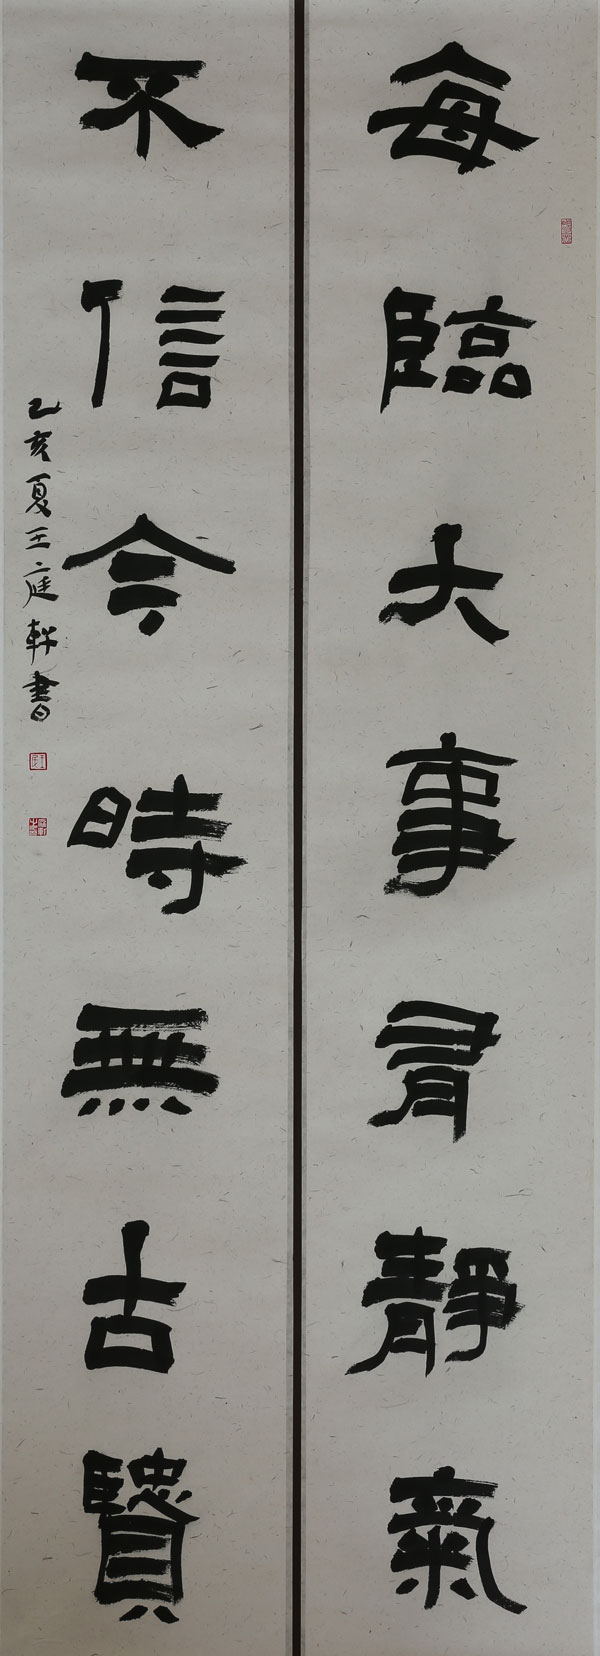 每臨大事有靜氣
不信今時無古賢
乙亥夏王庭軒書